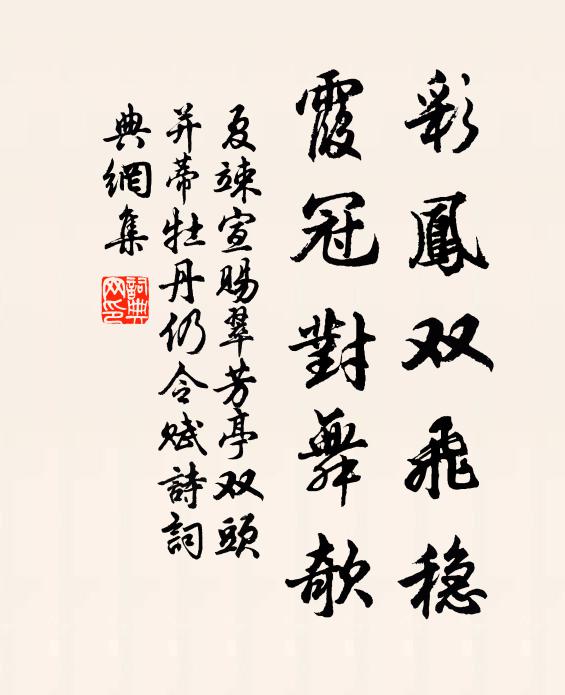 彩鳳双飛穏
霞冠對舞欹
夏竦宣賜翠芳亭双頭
并蒂牡丹仍令賦詩詞
典網集
詞典
网印